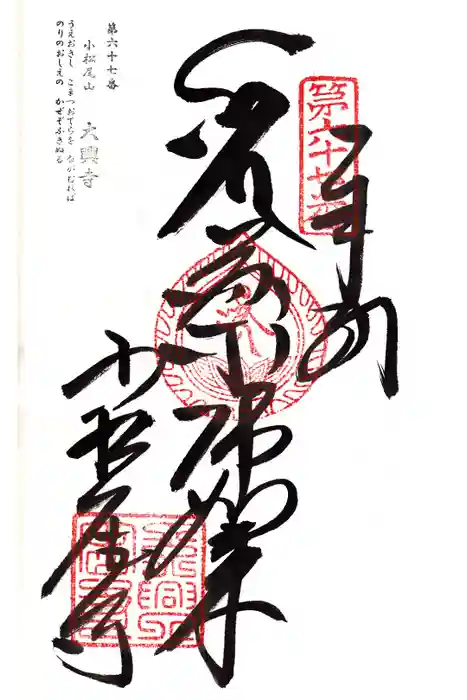 第六十七番
奉納
薬師如来
小松尾寺
第六十七番
小松尾山 大興寺
うえおきし こまつおでらを ながむれば
のりのおしえの かぜぞふきぬる